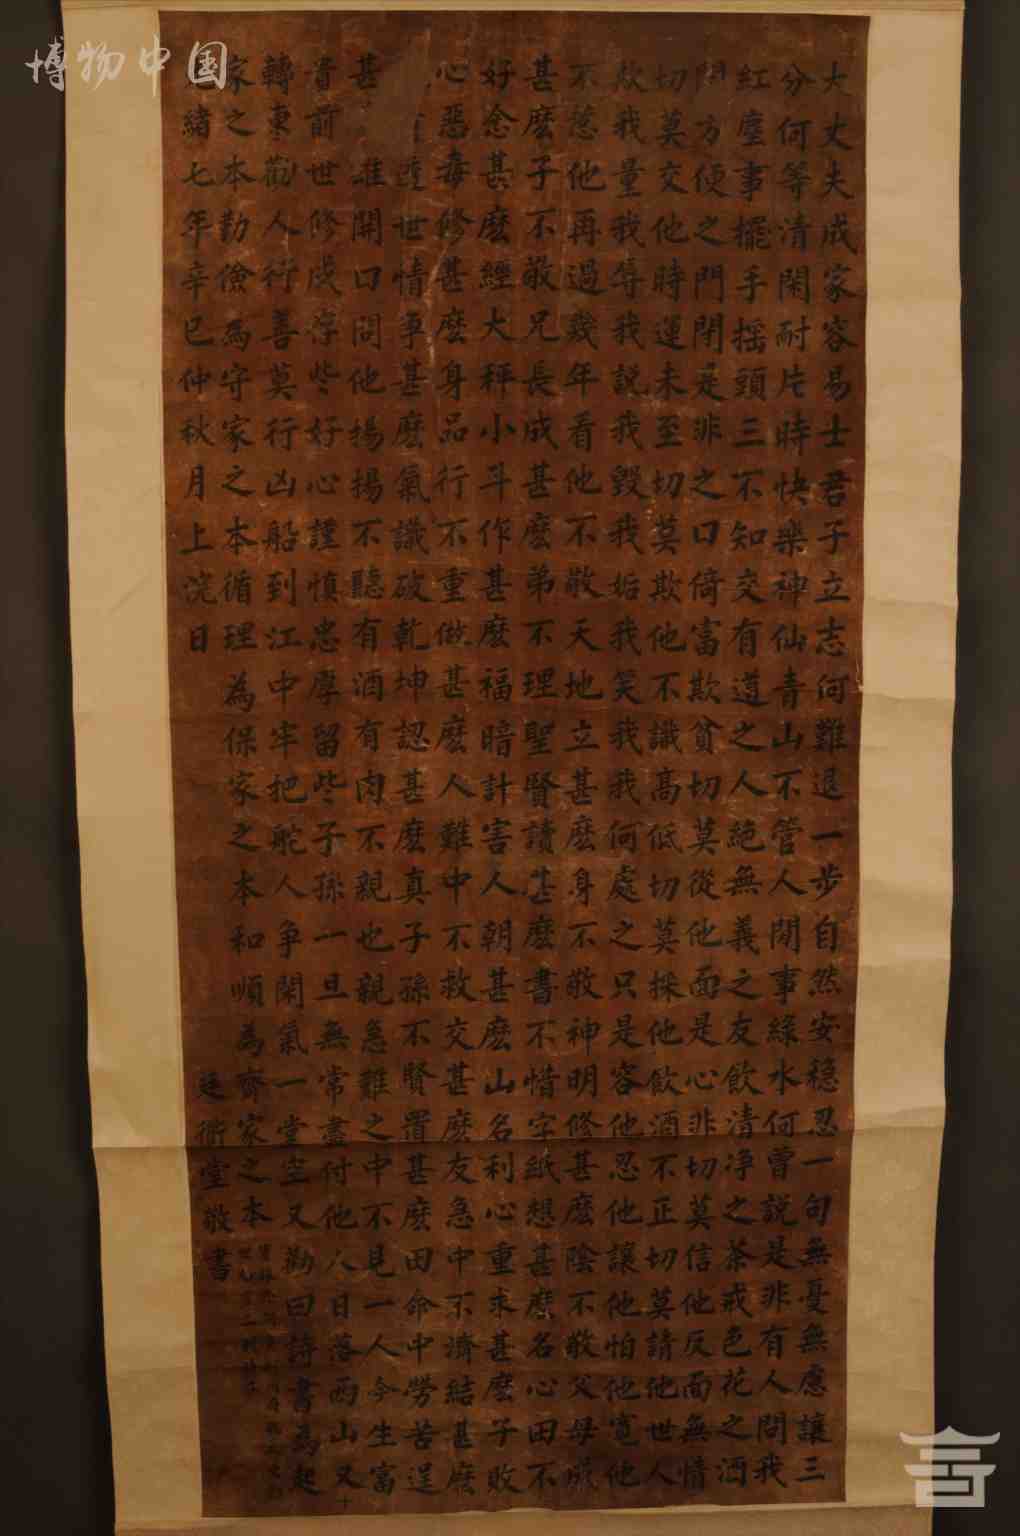 博物中国
大丈夫成家容易士君子立志何難退一步自然安穩忍一句無憂無慮讓三
分何等清閑耐片時快樂神仙青山不管人閒事綠水何曾說是非有人問我
紅塵事擺手搖頭三不知交有道之人絕無義之友飲清淨之茶戒色花之酒
開方便之門閉是非之口倚富欺貧切莫從他面是心非切莫信他反面無情
切莫交他時運未至切莫欺他不識高低切莫採他飲酒不正切莫請他世人
欺我量我辱我說我毀我姤我笑我我何處之只是容他忍他讓他怕他寬他
不惹他再過幾年看他不敬天地立甚麽身不敬神明修甚麽陰不敬父母成
甚麽子不敬兄長成甚麽弟不理聖賢讀甚麽書不惜字紙想甚麽名心田不
好念甚麽經大秤小斗作甚麽福暗計害人朝甚麽山名利心重求甚麽子敗
心惡毒修甚麽身品行不重做甚麽人難中不救交甚麽友急中不濟結甚麽
世情事甚麽氣識破乾坤認甚麽真子孫不賢置甚麽田命中勞苦逞
甚 誰開口問他揚揚不聽有酒有肉不親也親急難之中不見一人今生富
貴前世修成存些好心謹慎忠厚留些子孫一旦無常盡付他人日落西山又
轉東勸人行善莫行凶船到江中牢把舵人爭閑氣一堂空又勸曰詩書為起
家之本勤儉為守家之本循理為保家之本和順為齊家之本
光緒七年辛巳仲秋月上浣日
廷衡堂敬書